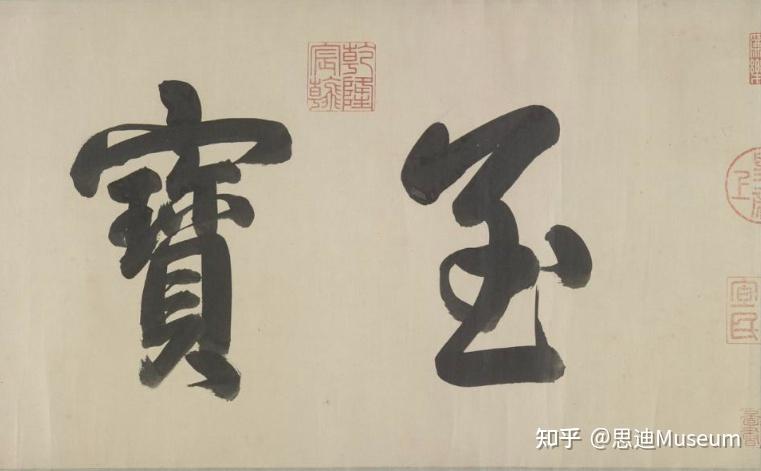 至寶
乾隆宸翰
知乎 @思迪Museum